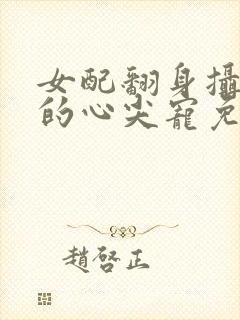 女配翻身攝
的心尖寵免
趙啓正